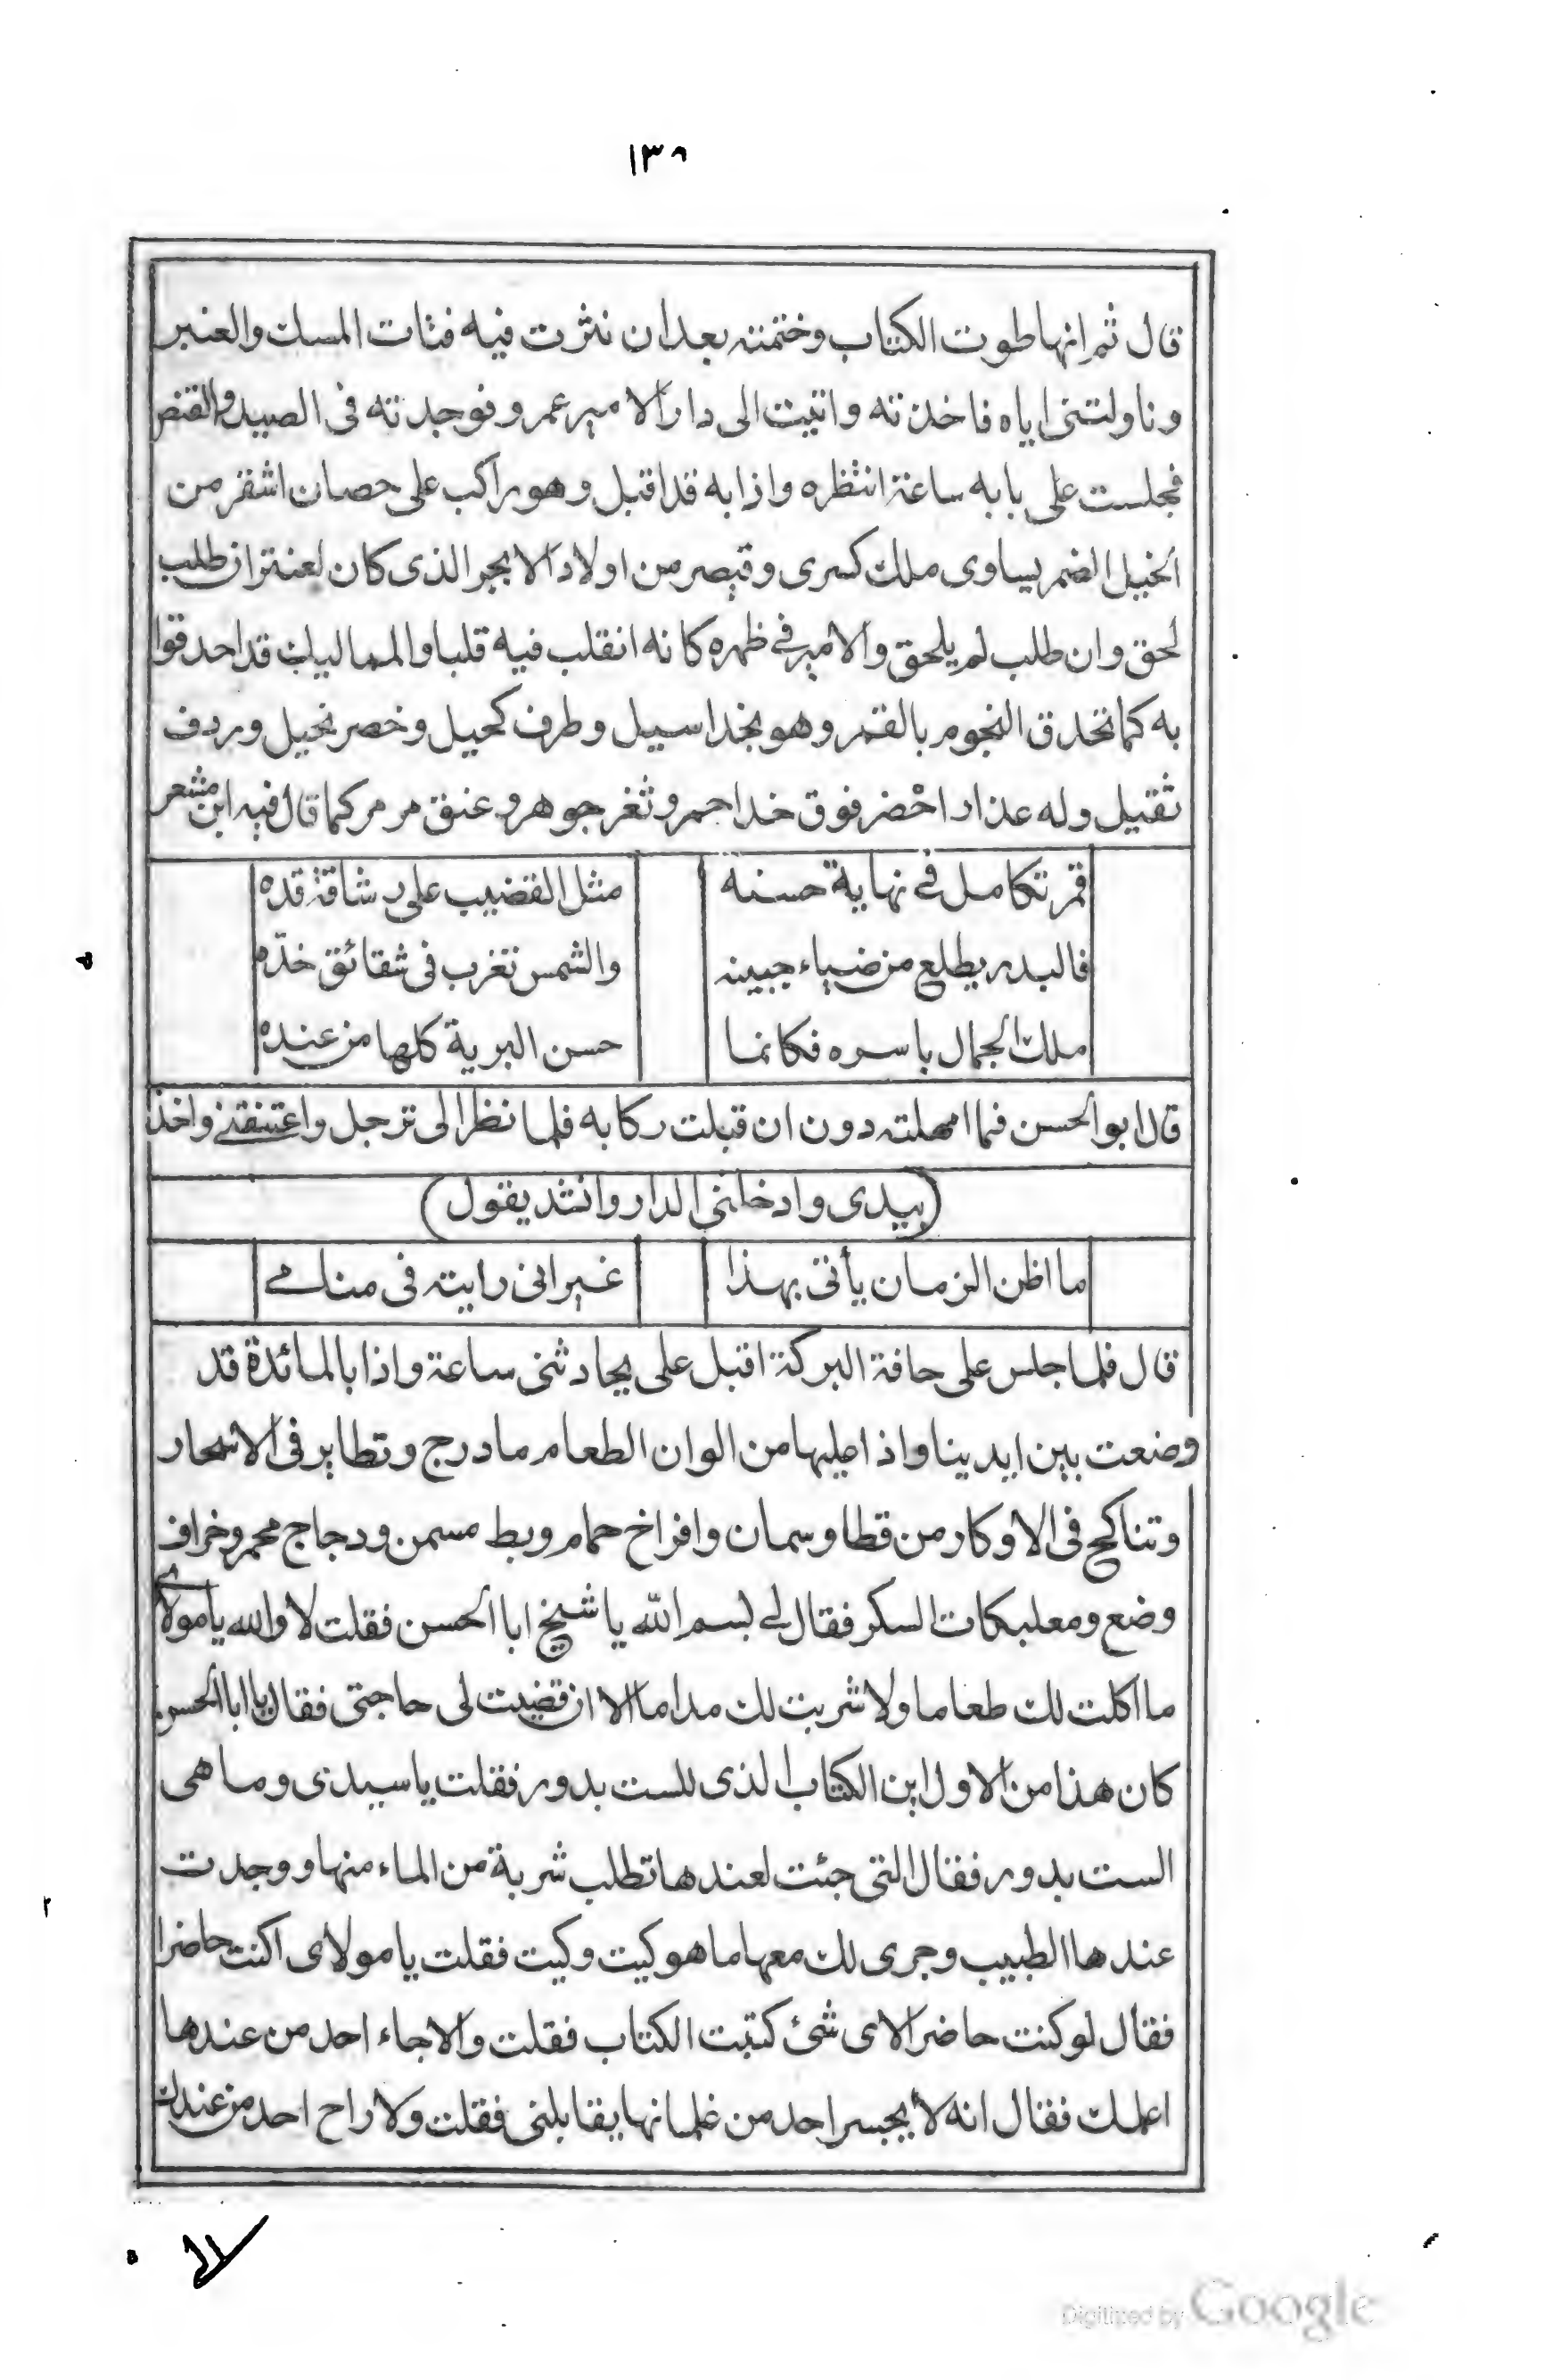 ١٣٨
قال ثم انها طوت الكتاب وختمته بعد ان نثرت فيه فتات المسك والعنبر
وناولتنى اياه فاخذته واتيت الى دار الامير عمرو فوجدته فى الصيد والقنص
فجلست على بابه ساعة انتظره واذا به قد اقبل وهو راكب على حصان اشقر من
الخيل الضمر يساوى ملك كسرى وقيصر من اولاد الابجر الذى كان لعنتر ان طلب
لحق وان طلب لم يلحق والامير فى ظهره كانه انقلب فيه قلبا والمماليك قد احدقوا
به كما تحدق النجوم بالقمر وهو بخد اسيل وطرف كحيل وخصر نحيل وردف
ثقيل وله عذار اخضر فوق خد احمر وثغر جوهر وعنق مرمر كما قال فيه ابن مشعر
قمر تكامل فى نهاية حسنه مثل القضيب على رشاقة قده
فالبدر يطلع من ضياء جبينه والشمس تغرب فى شقائق خدّه
ملك الجمال باسره فكانما حسن البرية كلها من عنده
قال ابو الحسن فما امهلته دون ان قبلت ركابه فلما نظر الى ترجل واعتنقنى واخذ
(بيدى وادخلنى الدار وانشد يقول)
ما اظن الزمان يأتى بهذا غير انى رايته فى منامى
قال فلما جلس على حافة البركة اقبل على يحادثنى ساعة واذا بالمائدة قد
وضعت بين ايدينا واذا عليها من الوان الطعام ما درج وتطاير فى الاسحار
وتناكح فى الاوكار من قطا وسمان وافراخ حمام وبط مسمن ودجاج محمر وخراف
وضع ومعلبكات السكر فقال لى بسم الله يا شيخ ابا الحسن فقلت لا والله يا مولاى
ما اكلت لك طعاما ولا شربت لك مداما الا ان قضيت لى حاجتى فقال يا ابا الحسن
كان هذا من الاول اين الكتاب الذى للست بدور فقلت يا سيدى وما هى
الست بدور فقال التى جئت لعندها تطلب شربة من الماء منها ووجدت
عندها الطبيب وجرى لك معها ما هو كيت وكيت فقلت يا مولاى اكنت حاضرا
فقال لو كنت حاضرا لاى شئ كتبت الكتاب فقلت والا جاء احد من عندها
اعلمك فقال انه لا يجسر احد من غلمانها يقابلنى فقلت ولا راح احد من عندك
Digitized by Google